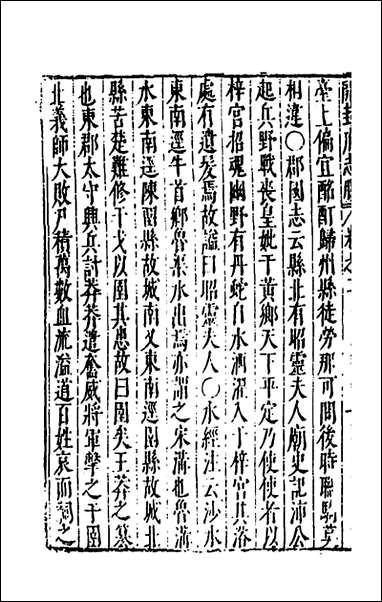 臺上偏宜酩酊歸州縣徒勞那可問後時聯騎莫
相違○郡國志云縣北有昭靈夫人廟史記沛公
起兵野戰喪皇妣于黃鄉天下平定乃使使者以
梓宮招魂幽野有丹蛇自水洒濯入于梓宮其浴
處有遺髮焉故謚曰昭靈夫人○水經注云沙水
東南逕牛首鄉魯溝水出焉亦謂之宋溝也魯溝
水東南逕陳留縣故城南又東南逕圉縣故城北
縣苦楚難修干戈以圉其患故曰圉矣王莽之篡
也東郡太守興兵討莽莽遣奮威將軍擊之于圉
北義師大敗尸積萬數血流溢道百姓哀而祠之